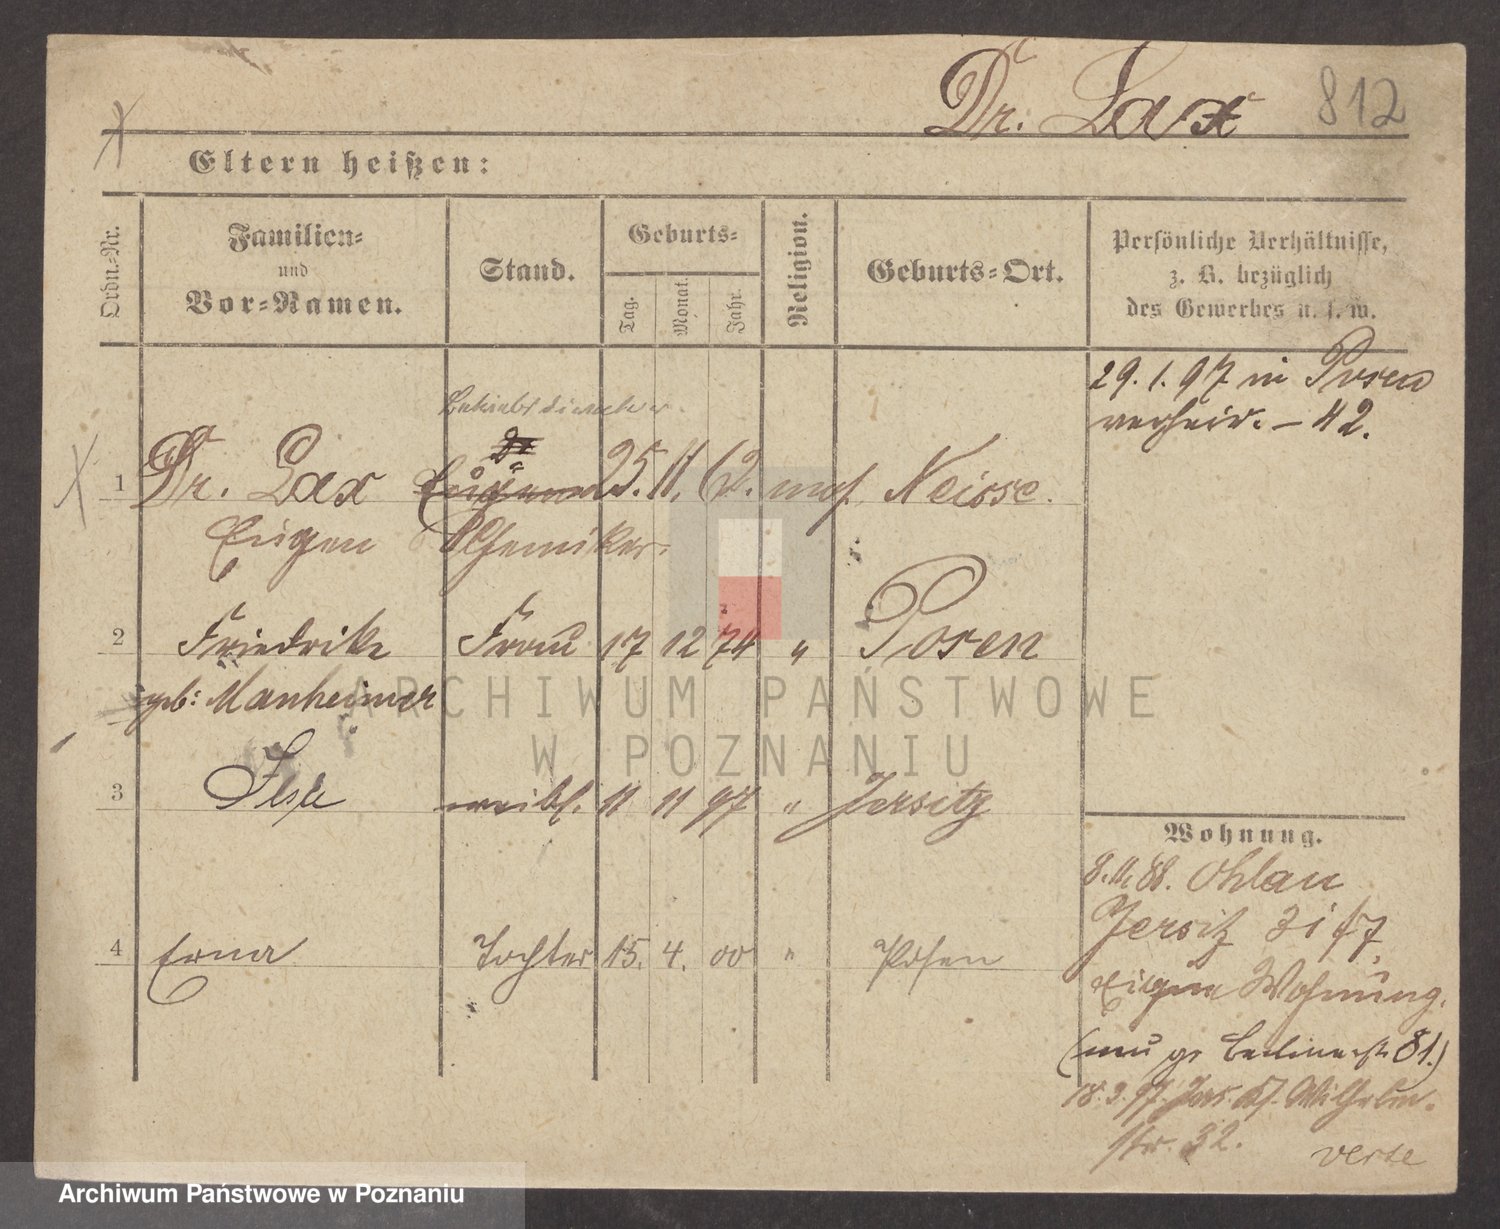 Dr. Lax 812
Eltern heißen:
Ordn.-Nr.
Familien-
und
Vor-Namen.
Stand.
Geburts-
Tag.
Monat.
Jahr.
Religion.
Geburts-Ort.
Persönliche Verhältnisse,
z. B. bezüglich
des Gewerbes u. s. w.
29. 1. 97 in Posen
verheir. – 42.
1 Dr. Lax Eugen 25. 11. 62. mos. Neisse.
Eugen Chemiker.
2 Friedrike Frau 17 12 74 " Posen
geb: Manheimer
3 Ilse weibl. 11 11 97 " Jersitz
4 Erna Tochter 15. 4. 00 " Posen
Wohnung.
8. 11. 88. Ohlau
Jersitz
Eigene Wohnung.
81.)
18. 3. 97. Jers. Wilhelm-
str. 32.
verte
ARCHIWUM PAŃSTWOWE
W POZNANIU
Archiwum Państwowe w Poznaniu